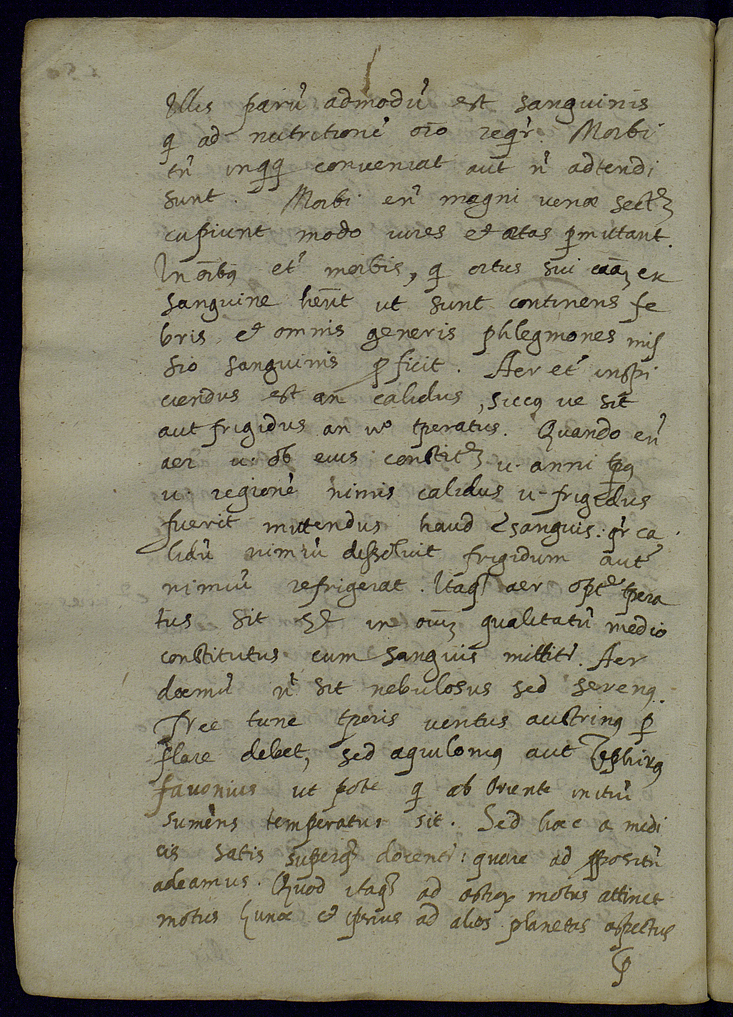 Illis parū admodū est sanguinis
q̨ ad nutritionē oīo reqr̄. Morbi
tn̄ inqq̨ conveniat aut n̄ adtendi
sunt. Morbi en̄ magni venæ sect
cupiunt modo vires et ætas pmittant.
In oībq et morbis, q̨ ortus sui cāā ex
sanguine hēnt ut sunt continens fe
bris, et omnis generis phlegmones mis
sio sanguinis pficit. Aer et inspi
ciendus est an calidus, siccq ve sit
aut frigidus an vo tperatus. Quando en̄
aer u. ob eius constit u. anni tpq
u. regionē nimis calidus u. frigidus
fuerit mittendus haud sanguis: qr ca
lidū nimiū dissolvit frigidum aut
nimiū refrigerat. Itaq aer opte tpera
tus sit et in oīuȝ qualitatū medio
constitutus cum sanguis mittitr. Aer
doemū n̄ sit nebulosus sed serenq.
Nec tunc tporis ventus austrinq p
flare debet, sed aquilonq aut Zephirq
favonius ut pote q̨ ab Oriente initiū
sumens temperatus sit. Sed hæc a medi
cis satis superq docentr: quare ad ppositū
adeamus. Quod itaq ad astroꝝ motus attinet
motus Lunæ et ipsius ad alios planetas aspectus